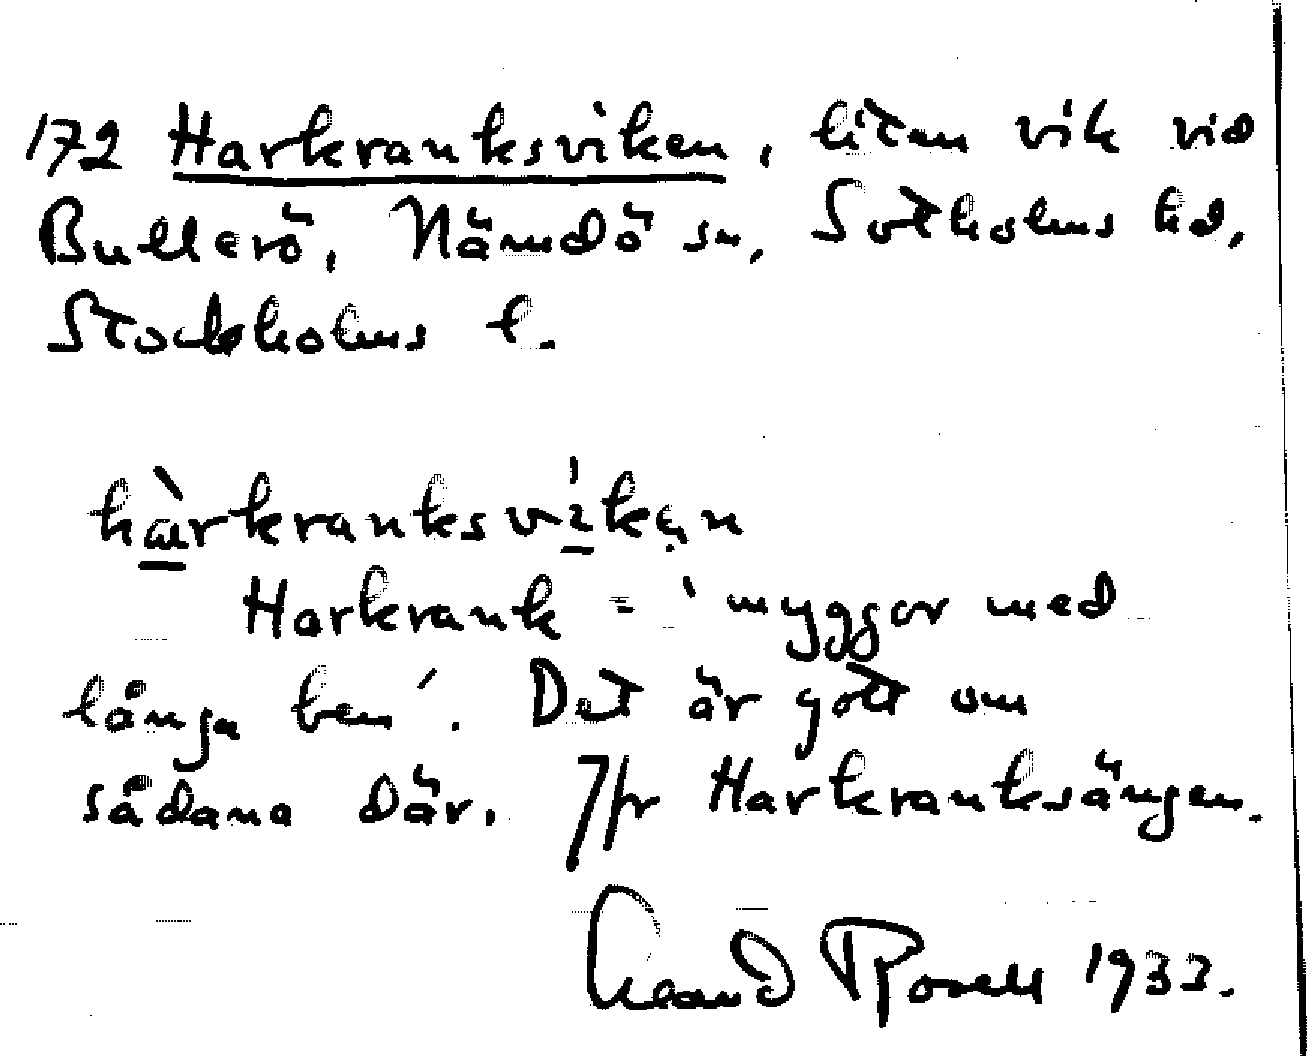 172 Harkranksviken, liten vik vid
Bullerö, Nämdö sn, Sotholms hd,
Stockholms l.
hàrkranksvíkən
Harkrank = 'myggor med
långa ben'. Det är gott om
sådana där. Jfr Harkranksängen.
Rosell 1933.